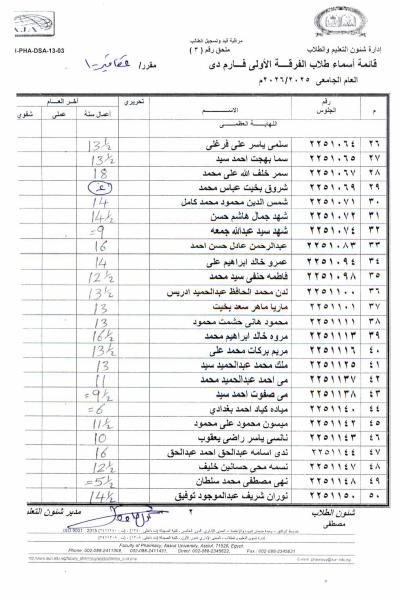 A.J.A
I-PHA-DSA-13-03
مراقبة قيد وتسجيل الطلاب
ملحق رقم ( ٣ )
إدارة شئون التعليم والطلاب
قائمة أسماء طلاب الفرقة الأولى فارم دى
مقرر/ عقاقير - ١
العام الجامعى ٢٠٢٦/٢٠٢٥م
م رقم الجلوس الاســـــم تحريرى آخر العــام
أعمال سنة عملى شفوى
النهـاية العظمـى
٢٦ ٢٢٥١٠٦٤ سلمى ياسر على فرغلى 13½
٢٧ ٢٢٥١٠٦٥ سما بهجت احمد سيد 13½
٢٨ ٢٢٥١٠٦٧ سمر خلف الله على محمد 18
٢٩ ٢٢٥١٠٦٩ شروق بخيت عباس محمد غ
٣٠ ٢٢٥١٠٧١ شمس الدين محمود محمد كامل 14
٣١ ٢٢٥١٠٧٢ شهد جمال هاشم حسن 14½
٣٢ ٢٢٥١٠٧٤ شهد سيد عبدالله جمعه =9
٣٣ ٢٢٥١٠٨٣ عبدالرحمن عادل حسن احمد 16
٣٤ ٢٢٥١٠٩٤ عمرو خالد ابراهيم على 14
٣٥ ٢٢٥١٠٩٨ فاطمه حنفى سيد محمد 12½
٣٦ ٢٢٥١١٠٠ لدن محمد الحافظ عبدالحميد ادريس 13½
٣٧ ٢٢٥١١٠١ ماريا ماهر سعد بخيت 13
٣٨ ٢٢٥١١١١ محمود هانى حشمت محمود 13
٣٩ ٢٢٥١١١٣ مروه خالد ابراهيم محمد 16½
٤٠ ٢٢٥١١١٦ مريم بركات محمد على 13½
٤١ ٢٢٥١١٢٥ ملك محمد عبدالحميد سيد 13
٤٢ ٢٢٥١١٣٧ مى احمد عبدالحميد محمد 11
٤٣ ٢٢٥١١٣٨ مى صفوت احمد سيد =9½
٤٤ ٢٢٥١١٤٠ مياده كياد احمد بغدادى =6
٤٥ ٢٢٥١١٤٢ ميسون محمود على محمود 11½
٤٦ ٢٢٥١١٤٣ نانسى ياسر راضى يعقوب 10
٤٧ ٢٢٥١١٤٤ ندى اسامه عبدالحق احمد عبدالحق 16
٤٨ ٢٢٥١١٤٧ نسمه محى حسانين خليف 12½
٤٩ ٢٢٥١١٤٨ نهى مصطفى محمد سلطان =5½
٥٠ ٢٢٥١١٥٠ نوران شريف عبدالموجود توفيق 14½
شئون الطلاب ٢ مدير شئون التعل
مصطفى
ISO 9001 : 2015
Faculty of Pharmacy, Assiut University, Assiut, 71526, Egypt.